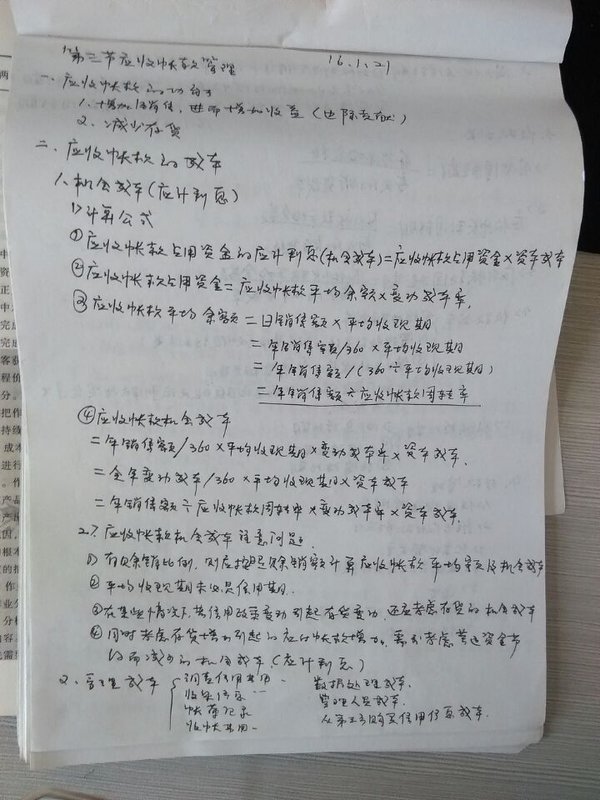 第三节应收帐款管理
16.1.21
一.应收帐款的功能
1.增加销售,进而增加收益(边际贡献)
2.减少存货
二.应收帐款的成本
1.机会成本(应计利息)
1>计算公式
①应收帐款占用资金的应计利息(机会成本)=应收帐款占用资金×资本成本
②应收帐款占用资金=应收帐款平均余额×变动成本率.
③应收帐款平均余额=日销售额×平均收现期
=年销售额/360×平均收现期
=年销售额/(360÷平均收现期)
=年销售额÷应收帐款周转率
④应收帐款机会成本
=年销售额/360×平均收现期×变动成本率×资本成本.
=全年变动成本/360×平均收现期×资本成本
=年销售额÷应收帐款周转率×变动成本率×资本成本.
2>.应收帐款机会成本注意问题:
①有赊销比例,则应按照赊销额计算应收帐款平均余额及机会成本
②平均收现期未必是信用期.
③在某些情况下,其信用政策变动引起存货变动,还应考虑存货的机会成本
④同时考虑存货增加引起的应付帐款增加,需要考虑营运资金节
约而减少的机会成本(应计利息)
2.管理成本
调查信用费用
数据处理成本.
收集信息
管理人员成本.
帐簿记录
从第三方购买信用信息成本.
收帐费用